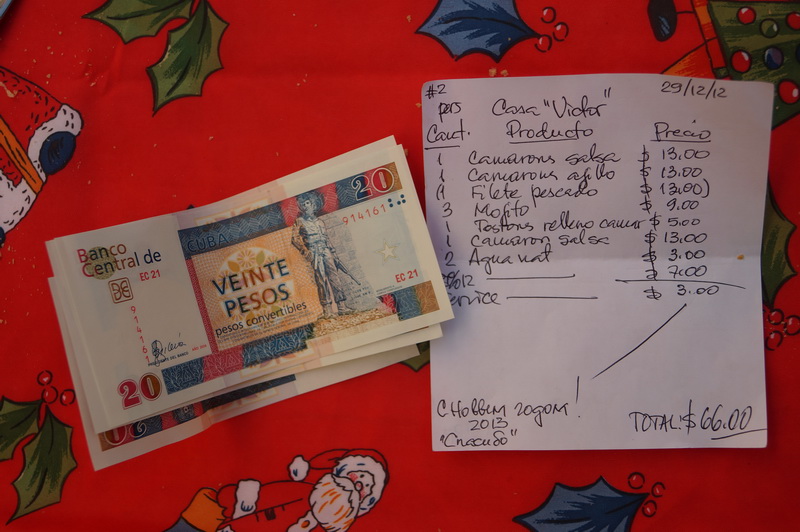 Banco
Central de
EC 21
914161
20
CUBA
VEINTE
PESOS
pesos convertibles
20
914161
EC 21
20
#2
pers
Casa "Victor"
29/12/12
Cant. Producto Precio
1 Camarons salsa $ 13.00
1 Camarons ajillo $ 13.00
(1 Filete pescado $ 13.00)
3 Mojito $ 9.00
1 Tostons relleno camar $ 5.00
1 Camaron salsa $ 13.00
2 Agua nat $ 3.00
$ 7.00
service $ 3.00
С Новым годом!
2013
"Спасибо"
TOTAL: $ 66.00